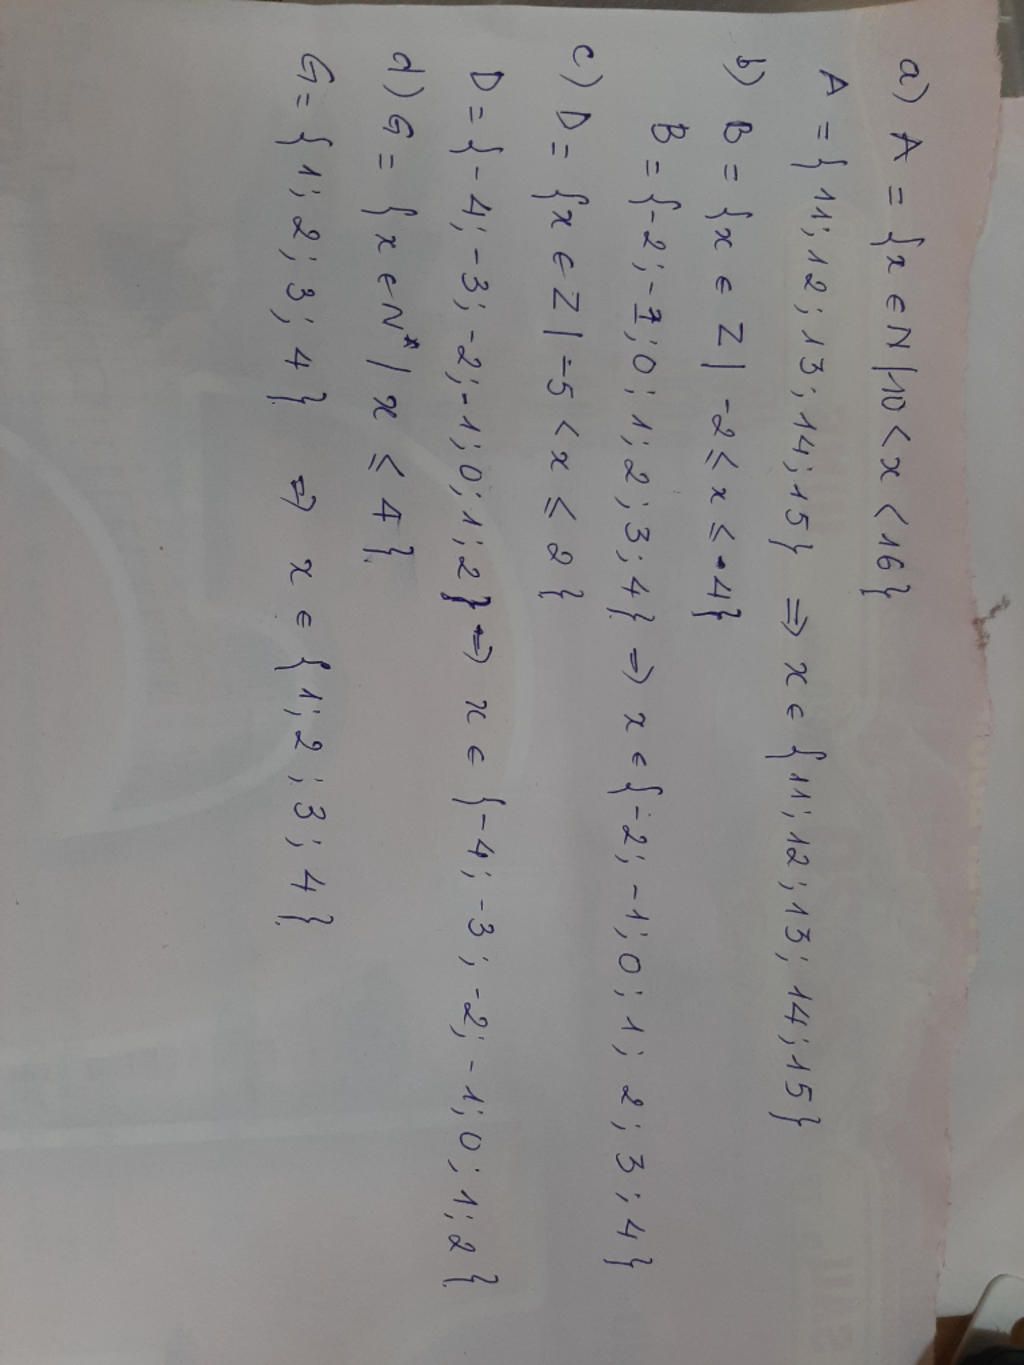 a) A = {x ∈ N | 10 < x < 16}
A = {11; 12; 13; 14; 15} ⇒ x ∈ {11; 12; 13; 14; 15}
b) B = {x ∈ Z | -2 ≤ x ≤ 4}
B = {-2; -1; 0; 1; 2; 3; 4} ⇒ x ∈ {-2; -1; 0; 1; 2; 3; 4}
c) D = {x ∈ Z | -5 < x ≤ 2}
D = {-4; -3; -2; -1; 0; 1; 2} ⇒ x ∈ {-4; -3; -2; -1; 0; 1; 2}
d) G = {x ∈ N* | x ≤ 4}
G = {1; 2; 3; 4} ⇒ x ∈ {1; 2; 3; 4}